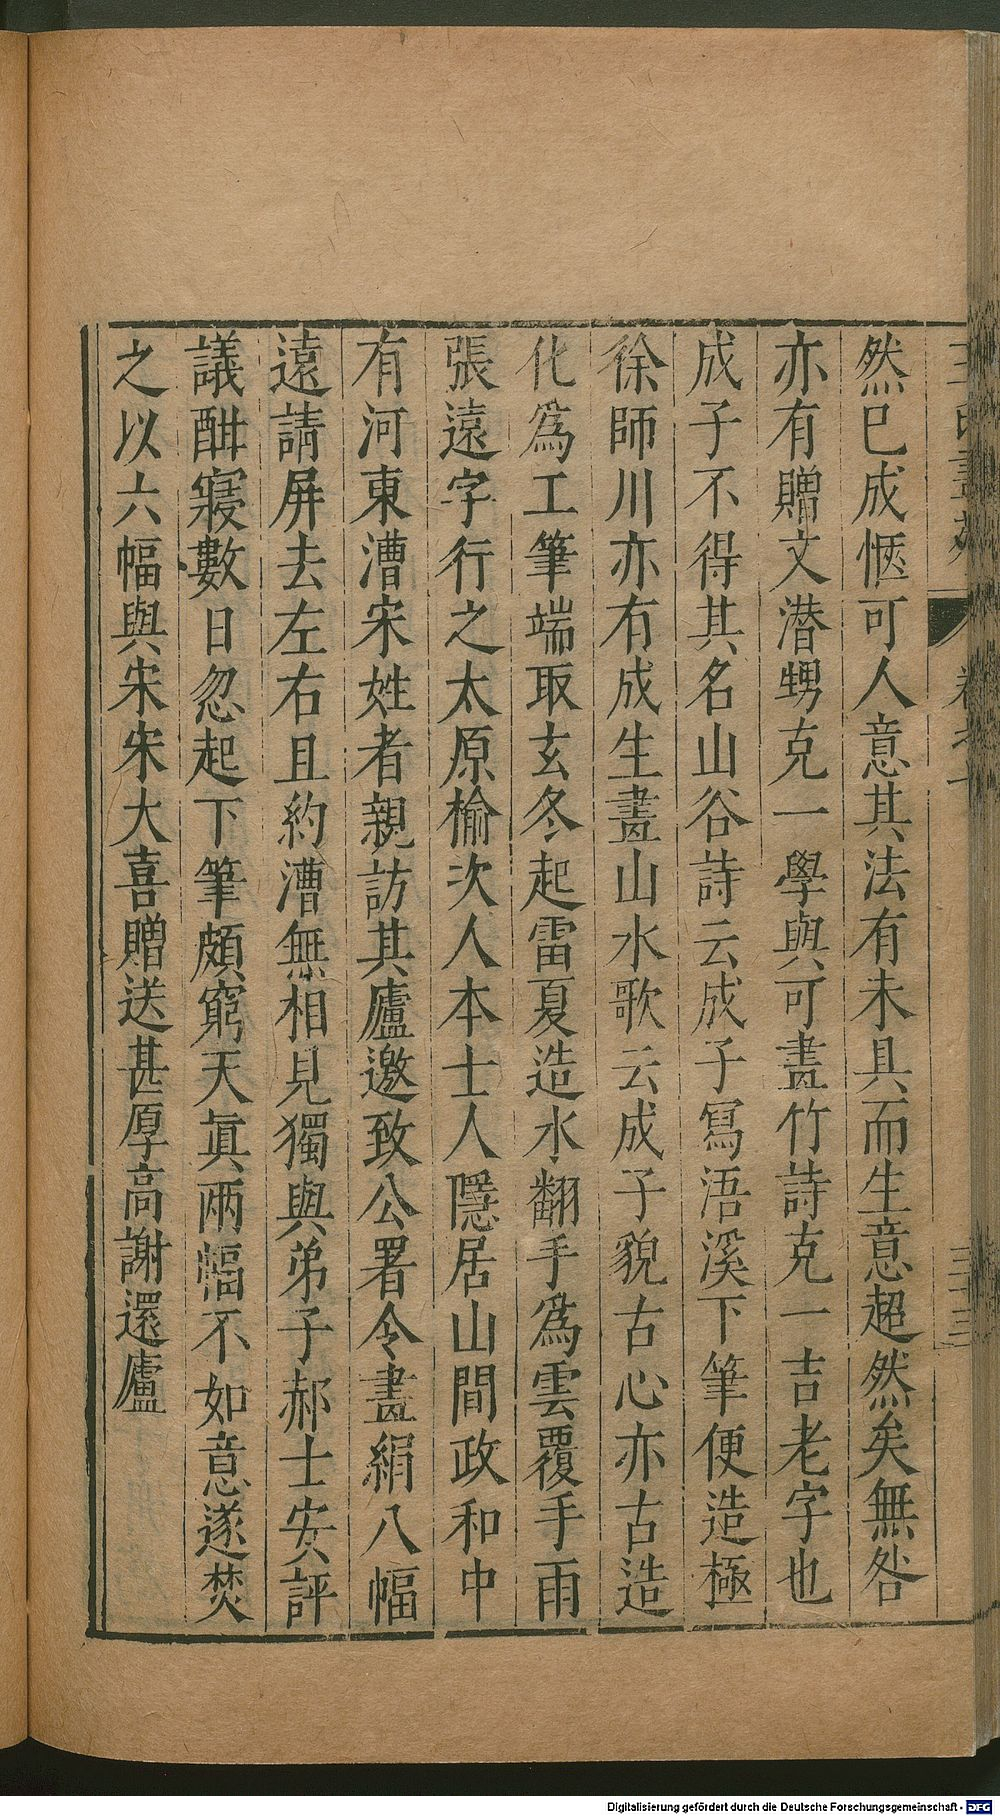 然已成愜可人意其法有未具而生意超然矣無咎
亦有贈文潛甥克一學與可畫竹詩克一吉老字也
成子不得其名山谷詩云成子寫浯溪下筆便造極
徐師川亦有成生畫山水歌云成子貌古心亦古造
化為工筆端取玄冬起雷夏造水翻手為雲覆手雨
張遠字行之太原榆次人本士人隱居山間政和中
有河東漕宋姓者親訪其廬邀致公署令畫絹八幅
遠請屏去左右且約漕無相見獨與弟子郝士安評
議酣寢數日忽起下筆頗窮天真兩幅不如意遂焚
之以六幅與宋宋大喜贈送甚厚高謝還廬
Digitalisierung gefördert durch die Deutsche Forschungsgemeinschaft - DFG